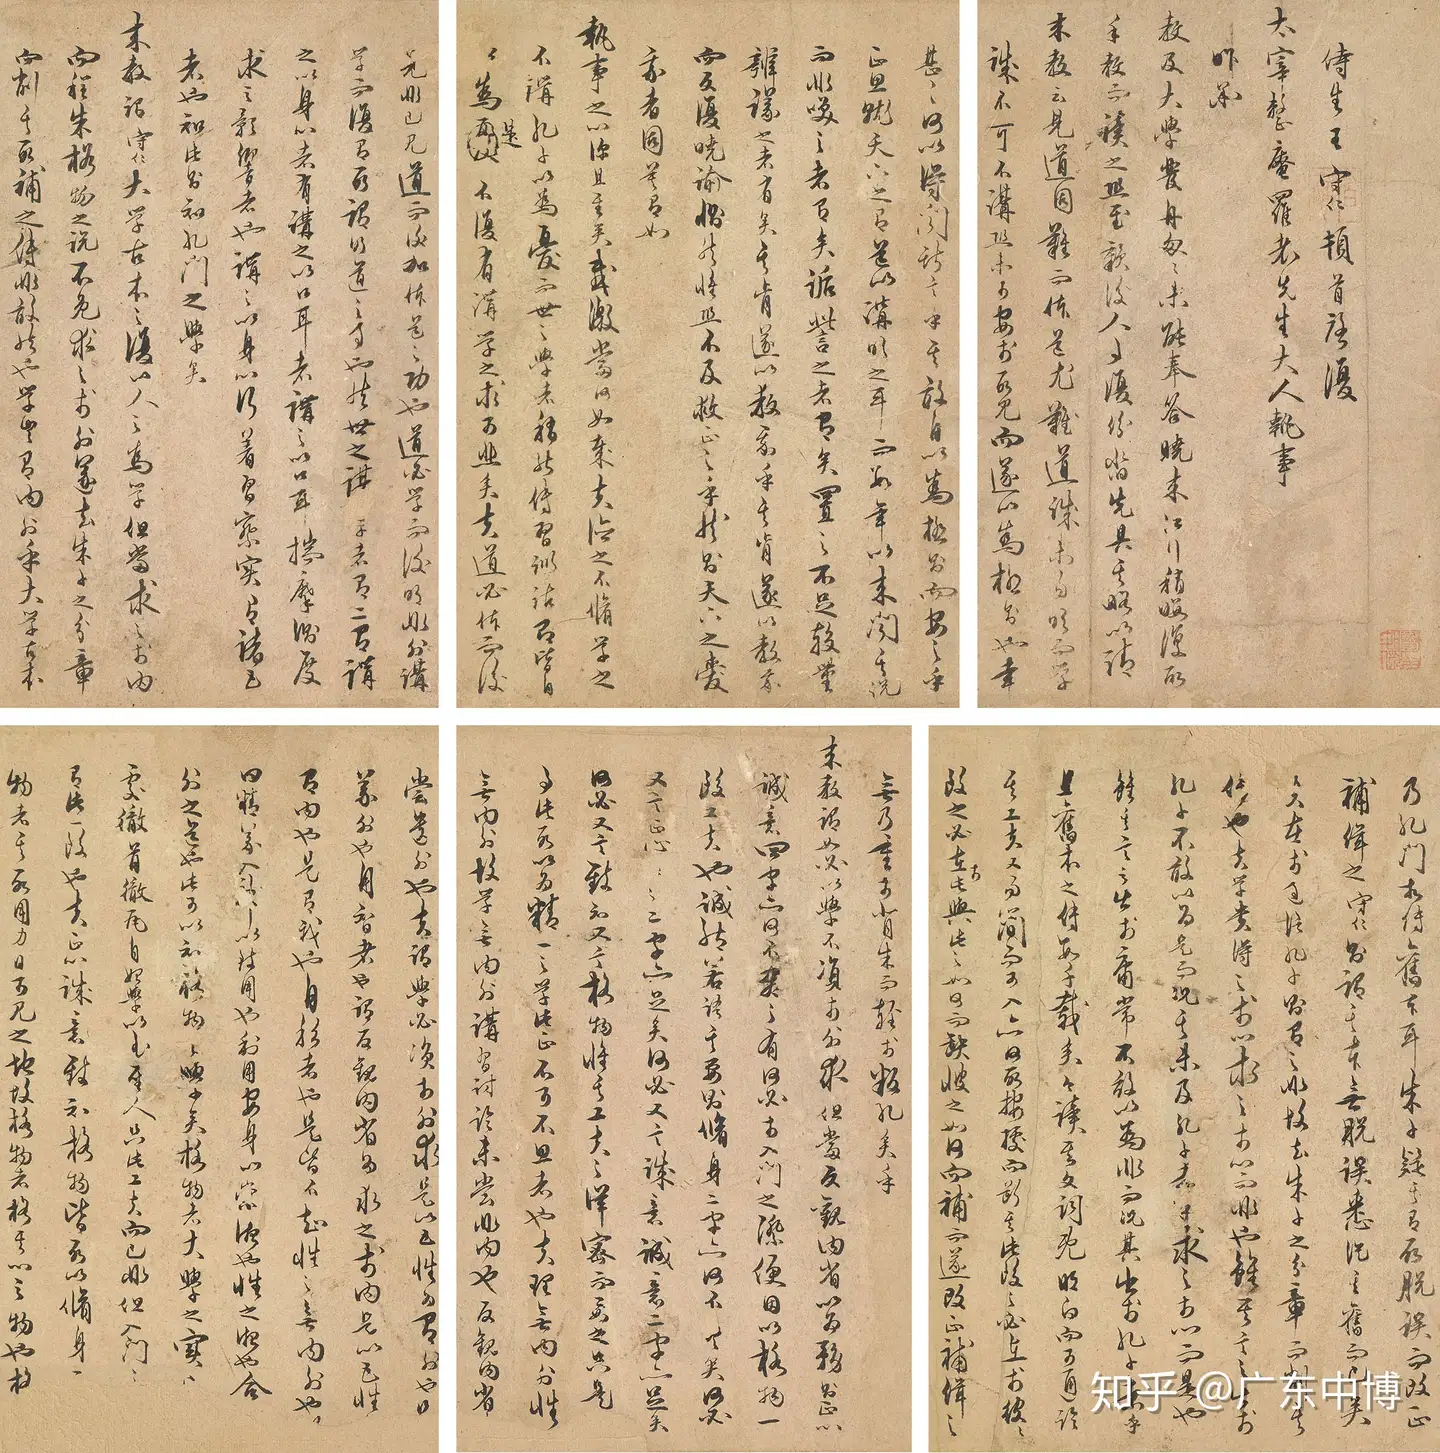 侍生王守仁頓首啓復
太宰整庵羅老先生大人執事
昨承
教及大學發舟匆々未能奉答曉來江行稍暇復取
手教而讀之恐至贛後人事復紛沓先具其略以請
來教云見道固難而體道尤難道誠未易明而學
誠不可不講恐未可安於所見而遂以為極則也幸
甚々何以得聞斯言乎其敢自以為極則而安之乎
正思就天下之有道以講明之耳而數年以來聞其說
而非笑之者有矣詬訾之者有矣置之不足較量
辨議之者有矣其肯遂以教我乎其肯遂以教我
而反復曉諭惻然惟恐不及救正之乎然則天下之愛
我者固莫有如
執事之心深且至矣感激當何如哉夫德之不脩學之
不講孔子以為憂而世之學者稍能傳習訓詁即皆自
以為是不復有講學之求可悲矣夫道必體而後
見非已見道而後加體道之功也道必學而後明非外講
學而復有所謂明道之事也然世之講學者有二有講
之以身心者有講之以口耳者講之以口耳揣摩測度
求之影響者也講之以身心行著習察實有諸己
者也知此則知孔門之學矣
來教謂守仁大學古本之復以人之為學但當求之於內
而程朱格物之說不免求之於外遂去朱子之分章
而削其所補之傳非敢然也學豈有內外乎大學古本
乃孔門相傳舊本耳朱子疑其有所脫誤而改正
補緝之守仁則謂其本無脫誤悉從其舊而已矣
失在於過信孔子則有之非故去朱子之分章而削其
傳也夫學貴得之於心求之於心而非也雖其言之出於
孔子不敢以為是而況其未及孔子者乎求之於心而是也
雖其言之出於庸常不敢以為非而況其出於孔子者乎
且舊本之傳數千載矣今讀其文詞既明白而可通論
其工夫又易簡而可入亦何所按據而斷其此段之必在於彼々
段之必在於此與此之如何而缺彼之如何而補而遂改正補緝之
無乃重於背朱而輕於叛孔矣乎
來教謂如必以學不資於外求但當反觀內省以為務則正心
誠意四字亦何不盡之有何必於入門之際便困以格物一
段工夫也誠然若語其要則脩身二字亦足矣何必
又言正心々々二字亦足矣何必又言誠意誠意二字亦足矣
何必又言致知又言格物惟其工夫之詳密而要之只是
一事此所以為精一之學此正不可不思者也夫理無內外性
無內外故學無內外講習討論未嘗非內也反觀內省
未嘗遺外也夫謂學必資於外求是以己性為有外也是
義外也用智者也謂反觀內省為求之於內是以己性為
有內也是有我也自私者也是皆不知性之無內外也故
曰精義入神以致用也利用安身以崇德也性之德也合
內外之道也此可以知格物之學矣格物者大學之實下手
處徹首徹尾自始學以至聖人只此工夫而已非但入門之際
有此一段也夫正心誠意致知格物皆所以脩身而格
物者其所用力日可見之地故格物者格其心之物也格
知乎 @广东中博